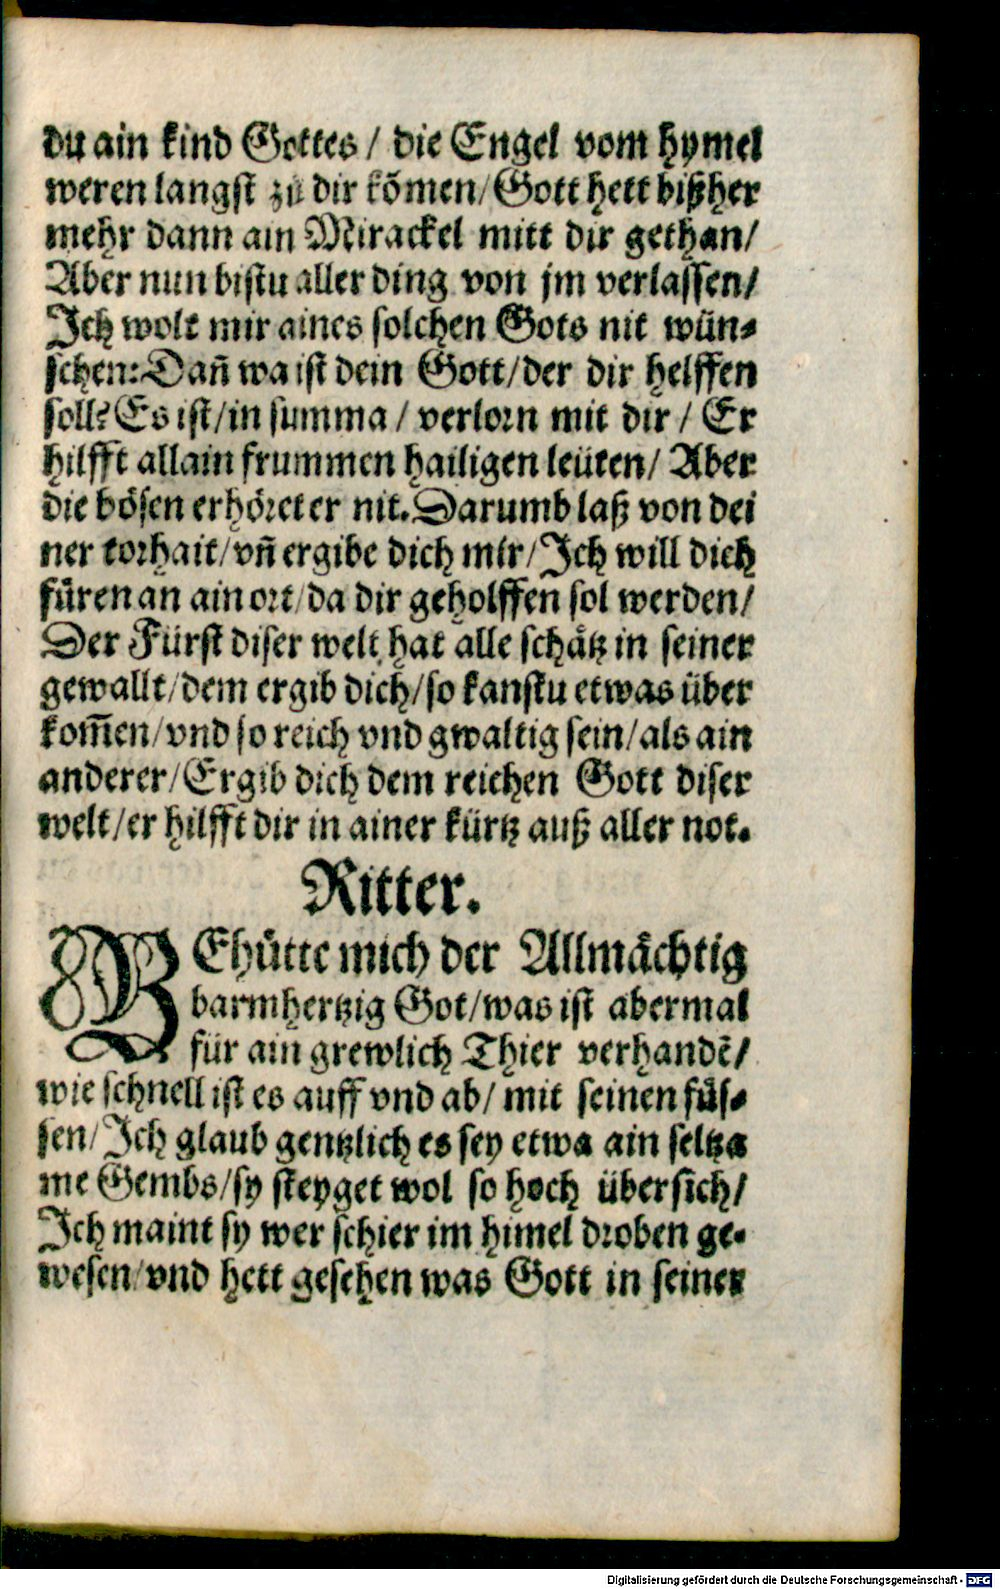 du ain kind Gottes / die Engel vom hymel
weren langst zů dir kõmen/ Gott hett bißher
mehr dann ain Mirackel mitt dir gethan/
Aber nun bistu aller ding von jm verlassen/
Ich wolt mir aines solchen Gots nit wün⸗
schen: Dañ wa ist dein Gott/ der dir helffen
soll? Es ist/ in summa / verlorn mit dir / Er
hilfft allain frummen hailigen leüten/ Aber
die bösen erhöret er nit. Darumb laß von dei
ner torhait/ vñ ergibe dich mir/ Ich will dich
füren an ain ort/ da dir geholffen sol werden/
Der Fürst diser welt hat alle schätz in seiner
gewallt/ dem ergib dich/ so kanstu etwas über
kom̃en/ vnd so reich vnd gwaltig sein/ als ain
anderer/ Ergib dich dem reichen Gott diser
welt/ er hilfft dir in ainer kürtz auß aller not.
Ritter.
BEhütte mich der Allmächtig
barmhertzig Got/ was ist abermal
für ain grewlich Thier verhandẽ/
wie schnell ist es auff vnd ab/ mit seinen füs⸗
sen/ Ich glaub gentzlich es sey etwa ain seltza
me Gembs/ sy steyget wol so hoch übersich/
Ich maint sy wer schier im himel droben ge⸗
wesen/ vnd hett gesehen was Gott in seiner
Digitalisierung gefördert durch die Deutsche Forschungsgemeinschaft - DFG